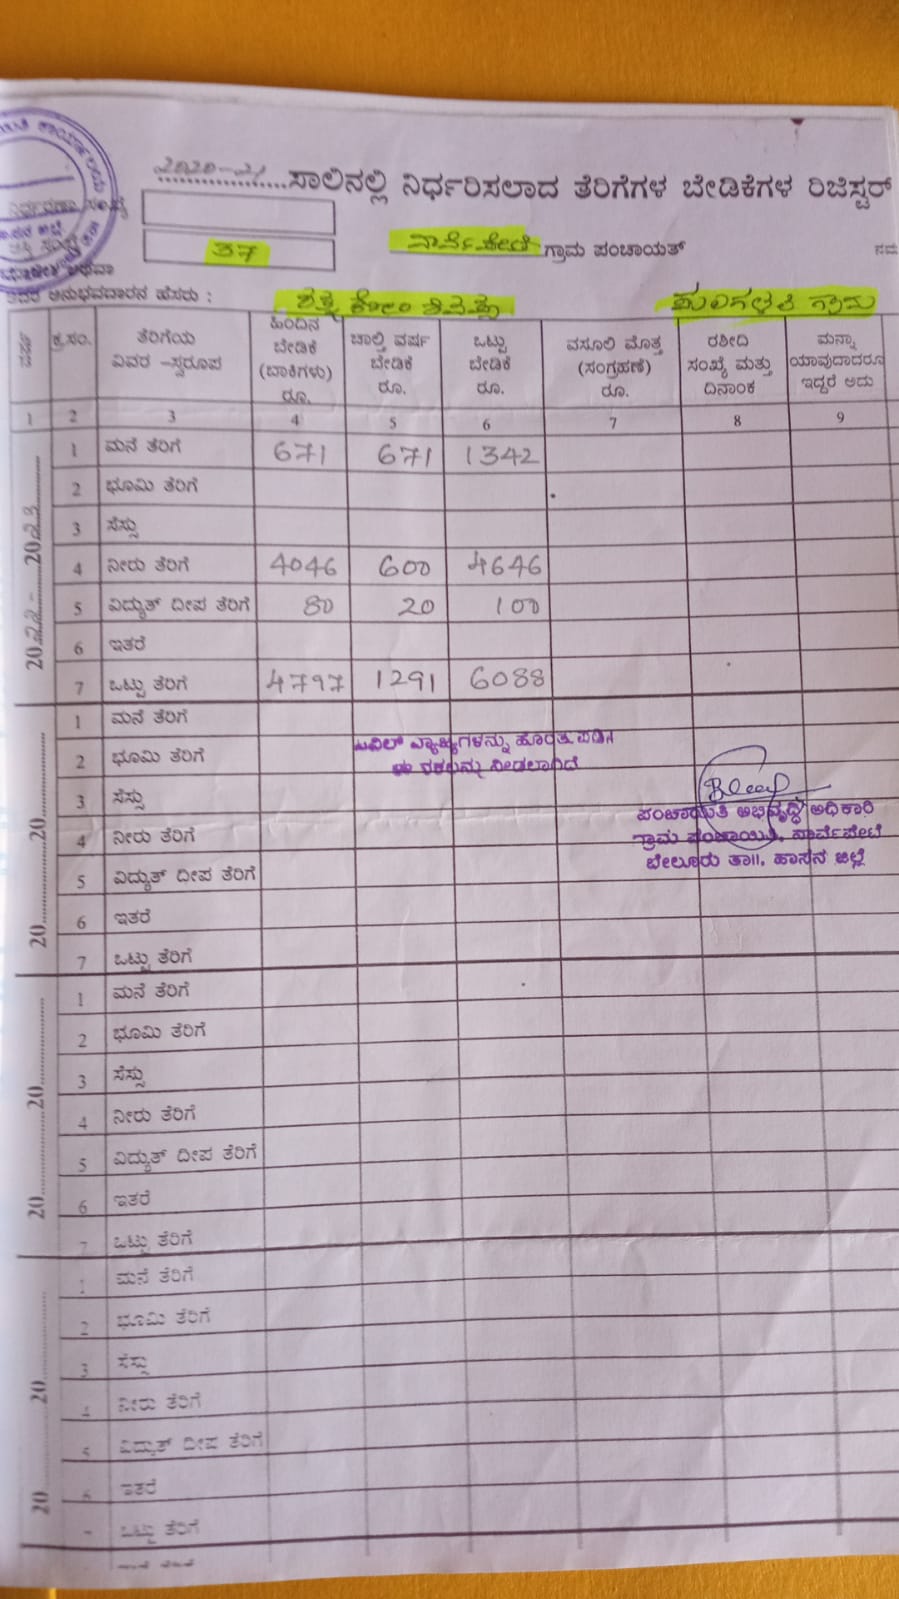 2020-21 ಸಾಲಿನಲ್ಲಿ ನಿರ್ಧರಿಸಲಾದ ತೆರಿಗೆಗಳ ಬೇಡಿಕೆಗಳ ರಿಜಿಸ್ಟರ್
ನಿರ್ಧರಣಾ ಸಂಖ್ಯೆ
ಆಸ್ತಿ ಸಂಖ್ಯೆ 37 ಗ್ರಾಮ ಪಂಚಾಯತ್
ಅದರ ಅನುಭವದಾರನ ಹೆಸರು : ಗ್ರಾಮ
ವರ್ಷ ಕ್ರ.ಸಂ. ತೆರಿಗೆಯ ವಿವರ –ಸ್ವರೂಪ ಹಿಂದಿನ ಬೇಡಿಕೆ (ಬಾಕಿಗಳು) ರೂ. ಚಾಲ್ತಿ ವರ್ಷ ಬೇಡಿಕೆ ರೂ. ಒಟ್ಟು ಬೇಡಿಕೆ ರೂ. ವಸೂಲಿ ಮೊತ್ತ (ಸಂಗ್ರಹಣೆ) ರೂ. ರಶೀದಿ ಸಂಖ್ಯೆ ಮತ್ತು ದಿನಾಂಕ ಮನ್ನಾ ಯಾವುದಾದರೂ ಇದ್ದರೆ ಅದು
1 2 3 4 5 6 7 8 9
2022- 2023
1 ಮನೆ ತೆರಿಗೆ 671 671 1342
2 ಭೂಮಿ ತೆರಿಗೆ
3 ಸೆಸ್ಸು
4 ನೀರು ತೆರಿಗೆ 4046 600 4646
5 ವಿದ್ಯುತ್ ದೀಪ ತೆರಿಗೆ 80 20 100
6 ಇತರೆ
7 ಒಟ್ಟು ತೆರಿಗೆ 4797 1291 6088
20 20
1 ಮನೆ ತೆರಿಗೆ
ಸಿವಿಲ್ ವ್ಯಾಜ್ಯಗಳನ್ನು ಹೊರತು ಪಡಿಸಿ
2 ಭೂಮಿ ತೆರಿಗೆ
ಈ ನಕಲನ್ನು ನೀಡಲಾಗಿದೆ
3 ಸೆಸ್ಸು
ಪಂಚಾಯಿತಿ ಅಭಿವೃದ್ಧಿ ಅಧಿಕಾರಿ
4 ನೀರು ತೆರಿಗೆ
ಗ್ರಾಮ ಪಂಚಾಯಿತಿ, ನಾರ್ವೆಪೇಟೆ
ಬೇಲೂರು ತಾ||, ಹಾಸನ ಜಿಲ್ಲೆ
5 ವಿದ್ಯುತ್ ದೀಪ ತೆರಿಗೆ
6 ಇತರೆ
7 ಒಟ್ಟು ತೆರಿಗೆ
20 20
1 ಮನೆ ತೆರಿಗೆ
2 ಭೂಮಿ ತೆರಿಗೆ
3 ಸೆಸ್ಸು
4 ನೀರು ತೆರಿಗೆ
5 ವಿದ್ಯುತ್ ದೀಪ ತೆರಿಗೆ
6 ಇತರೆ
7 ಒಟ್ಟು ತೆರಿಗೆ
20 20
1 ಮನೆ ತೆರಿಗೆ
2 ಭೂಮಿ ತೆರಿಗೆ
3 ಸೆಸ್ಸು
4 ನೀರು ತೆರಿಗೆ
5 ವಿದ್ಯುತ್ ದೀಪ ತೆರಿಗೆ
6 ಇತರೆ
ಒಟ್ಟು ತೆರಿಗೆ